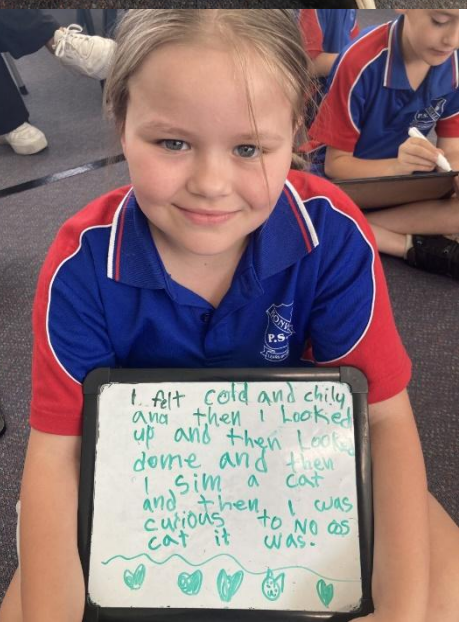 I felt cold and chily
and then I Looked
up and then Looked
dome and then
I sim a cat
and then I was
curious to No os
cat it was.
P.S.